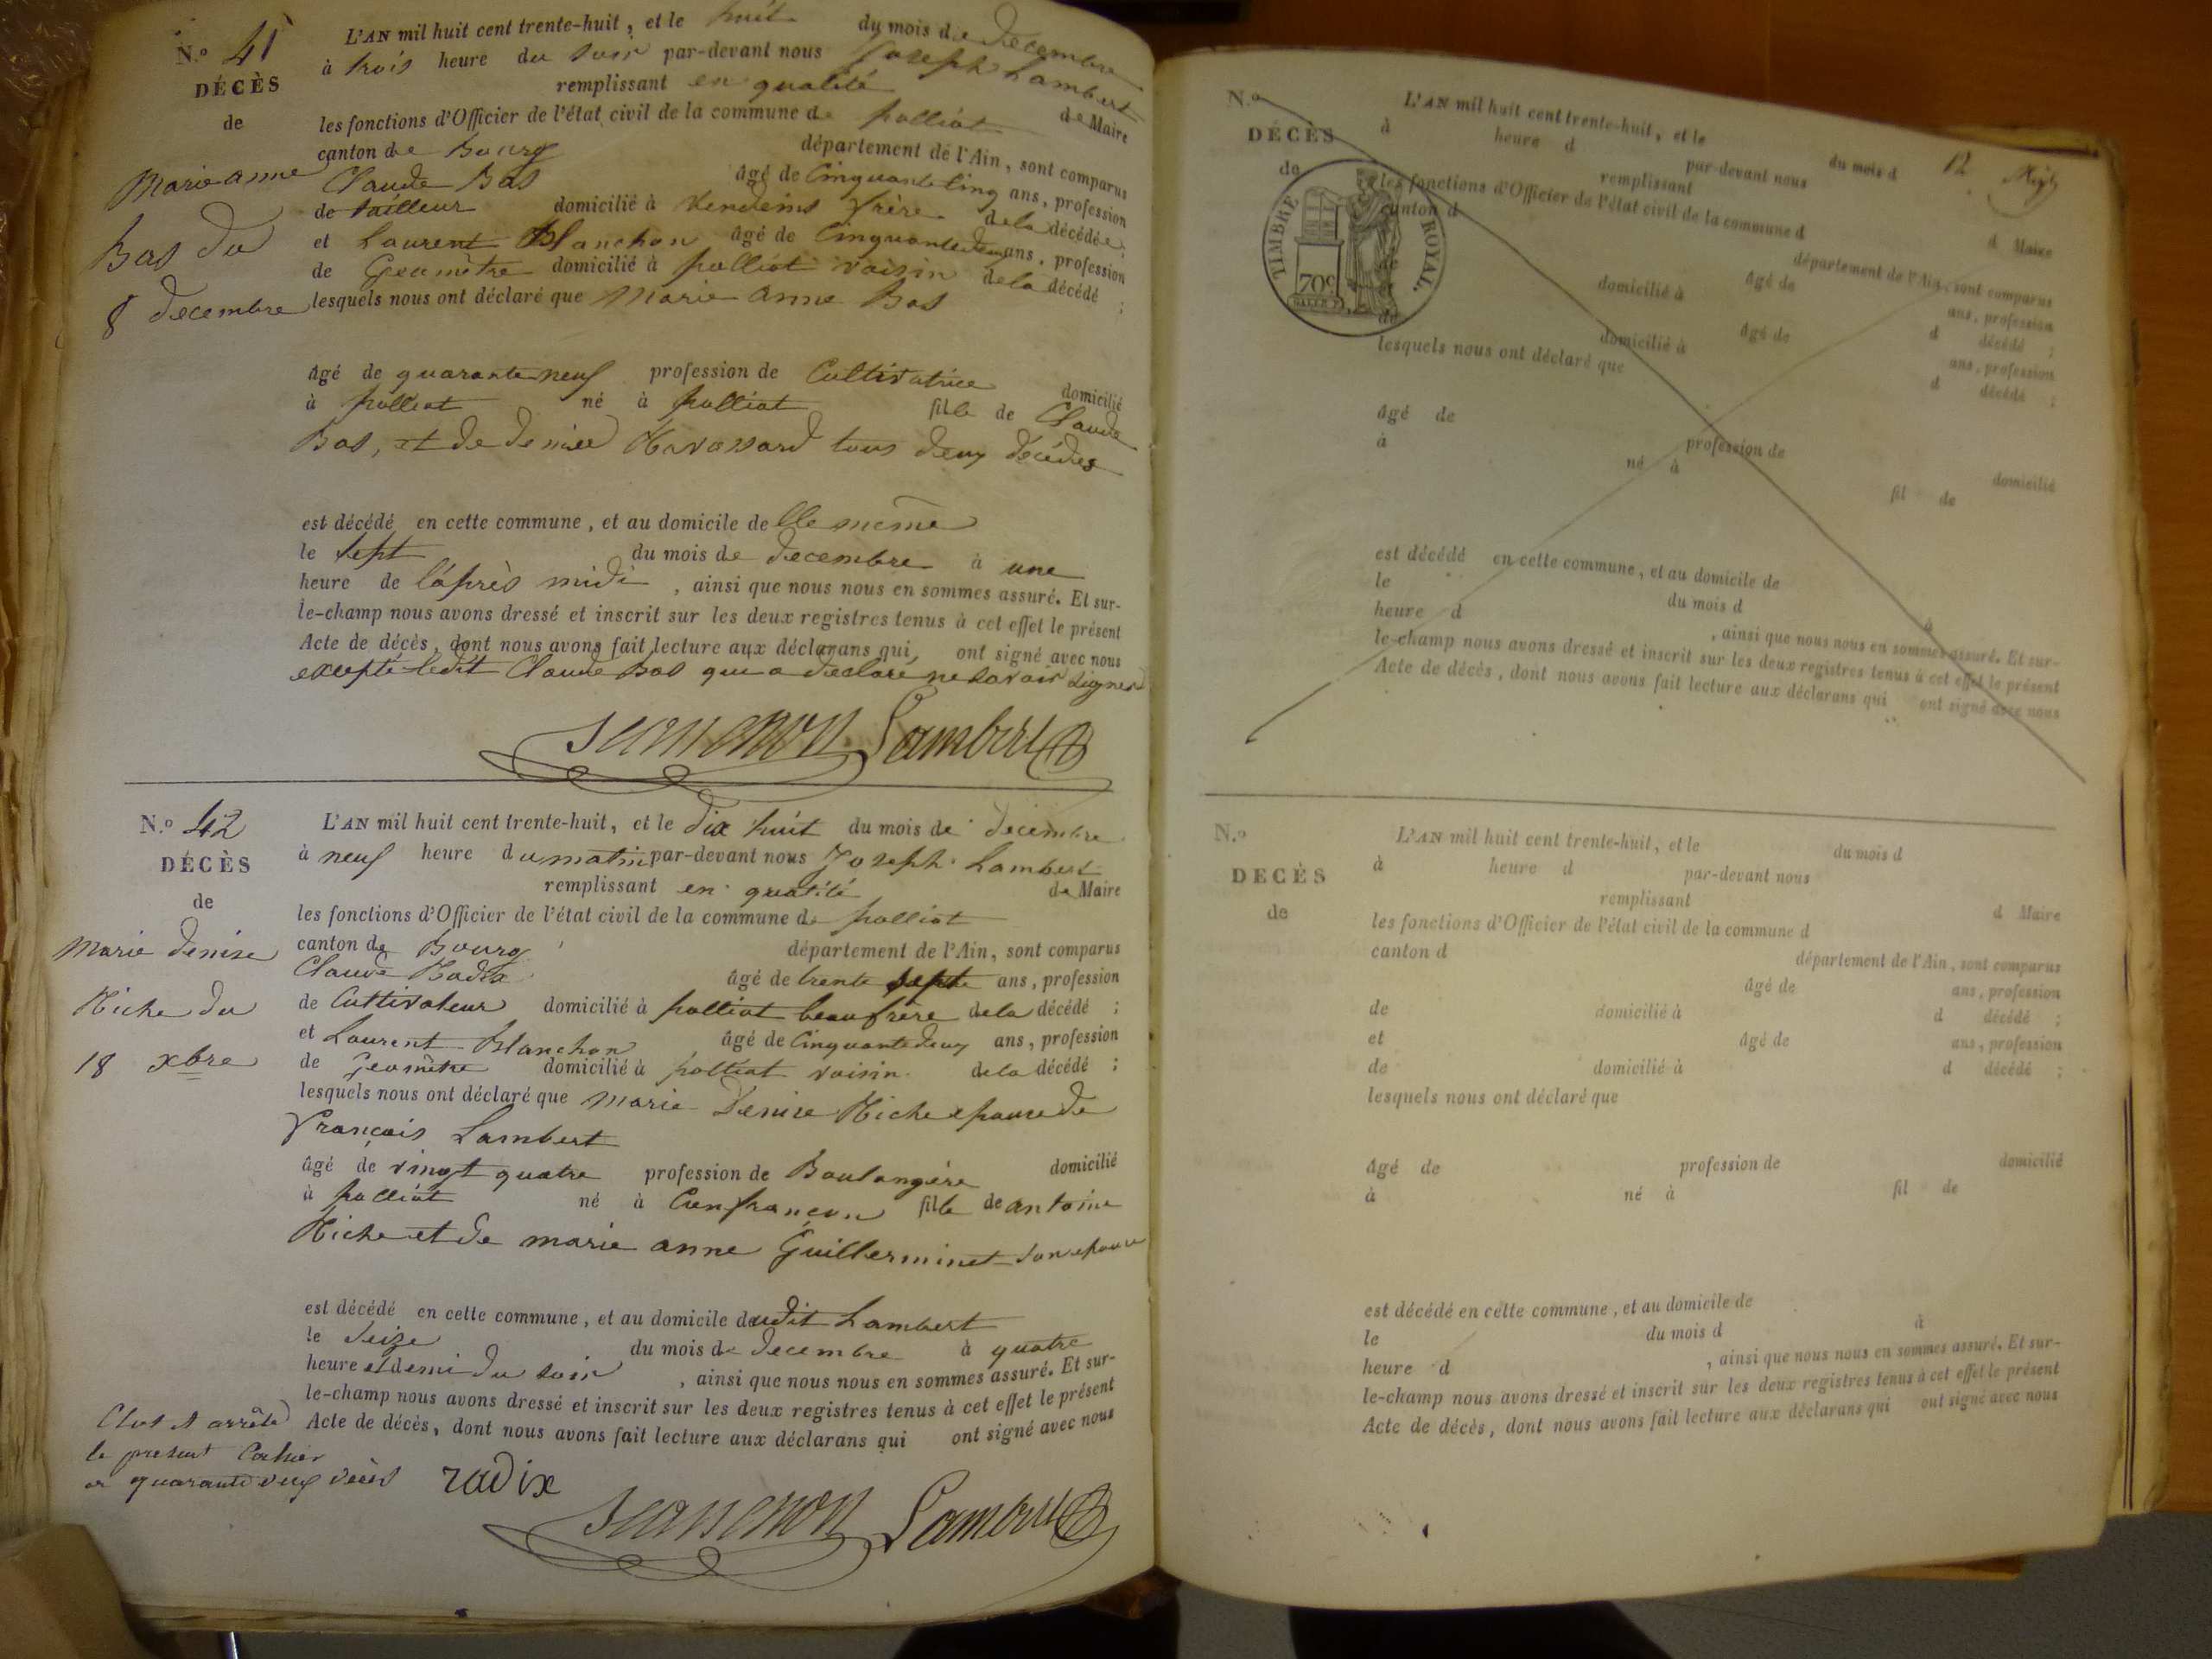 N.o 41
DÉCÈS
de
Marie anne
Bas du
8 decembre
L'AN mil huit cent trente-huit, et le huit du mois de decembre
à trois heure du soir par-devant nous Joseph Lambert
remplissant en qualité de Maire
les fonctions d'Officier de l'état civil de la commune de polliat
canton de Bourg département de l'Ain, sont comparus
Claude Bas âgé de Cinquante Cinq ans, profession
de tailleur domicilié à Vendeins frère de la décédée;
et Laurent Blanchon âgé de Cinquante deux ans, profession
de Géomètre domicilié à polliat voisin de la décédé ;
lesquels nous ont déclaré que Marie anne Bas
âgé de quarante neuf profession de Cultivatrice domicilié
à polliat né à polliat fille de Claude
Bas, et de denise tous deux décédés
est décédé en cette commune, et au domicile de lle même
le sept du mois de decembre à une
heure de l'après midi, ainsi que nous nous en sommes assuré. Et sur-
le-champ nous avons dressé et inscrit sur les deux registres tenus à cet effet le présent
Acte de décès, dont nous avons fait lecture aux déclarans qui ont signé avec nous
excepté ledit Claude Bas qui a déclaré ne savoir signer
Lambert
N.o 42
DÉCÈS
de
Marie denise
Miche du
18 xbre
L'AN mil huit cent trente-huit, et le dix huit du mois de decembre
à neuf heure du matin par-devant nous Joseph Lambert
remplissant en qualité de Maire
les fonctions d'Officier de l'état civil de la commune de polliat
canton de Bourg département de l'Ain, sont comparus
Claude Radix âgé de trente sept ans, profession
de Cultivateur domicilié à polliat beaufrère de la décédé ;
et Laurent Blanchon âgé de Cinquante deux ans, profession
de Géomètre domicilié à polliat voisin de la décédé ;
lesquels nous ont déclaré que Marie Denise Miche epouse de
François Lambert
âgé de vingt quatre profession de Boulangère domicilié
à polliat né à Confrançon fille de antoine
Miche et de marie anne Guillerminet son epouse
est décédé en cette commune, et au domicile dudit Lambert
le Seize du mois de decembre à quatre
heure et demi du soir, ainsi que nous nous en sommes assuré. Et sur-
le-champ nous avons dressé et inscrit sur les deux registres tenus à cet effet le présent
Acte de décès, dont nous avons fait lecture aux déclarans qui ont signé avec nous
Clos et arrêté
le present Cahier
a quarante deux décès
radix
Lambert
12
N.o
DÉCÈS
de
TIMBRE ROYAL.
70c
L'AN mil huit cent trente-huit, et le du mois d
à heure d par-devant nous
remplissant d Maire
les fonctions d'Officier de l'état civil de la commune d
canton d département de l'Ain, sont comparus
âgé de ans, profession
de domicilié à d décédé ;
âgé de ans, profession
de domicilié à d décédé ;
lesquels nous ont déclaré que
âgé de profession de domicilié
à né à fil de
est décédé en cette commune, et au domicile de
le du mois d à
heure d , ainsi que nous nous en sommes assuré. Et sur-
le-champ nous avons dressé et inscrit sur les deux registres tenus à cet effet le présent
Acte de décès, dont nous avons fait lecture aux déclarans qui ont signé avec nous
N.o
DECÈS
de
L'AN mil huit cent trente-huit, et le du mois d
à heure d par-devant nous
remplissant d Maire
les fonctions d'Officier de l'état civil de la commune d
canton d département de l'Ain, sont comparus
âgé de ans, profession
de domicilié à d décédé ;
et âgé de ans, profession
de domicilié à d décédé ;
lesquels nous ont déclaré que
âgé de profession de domicilié
à né à fil de
est décédé en cette commune, et au domicile de
le du mois d à
heure d , ainsi que nous nous en sommes assuré. Et sur-
le-champ nous avons dressé et inscrit sur les deux registres tenus à cet effet le présent
Acte de décès, dont nous avons fait lecture aux déclarans qui ont signé avec nous